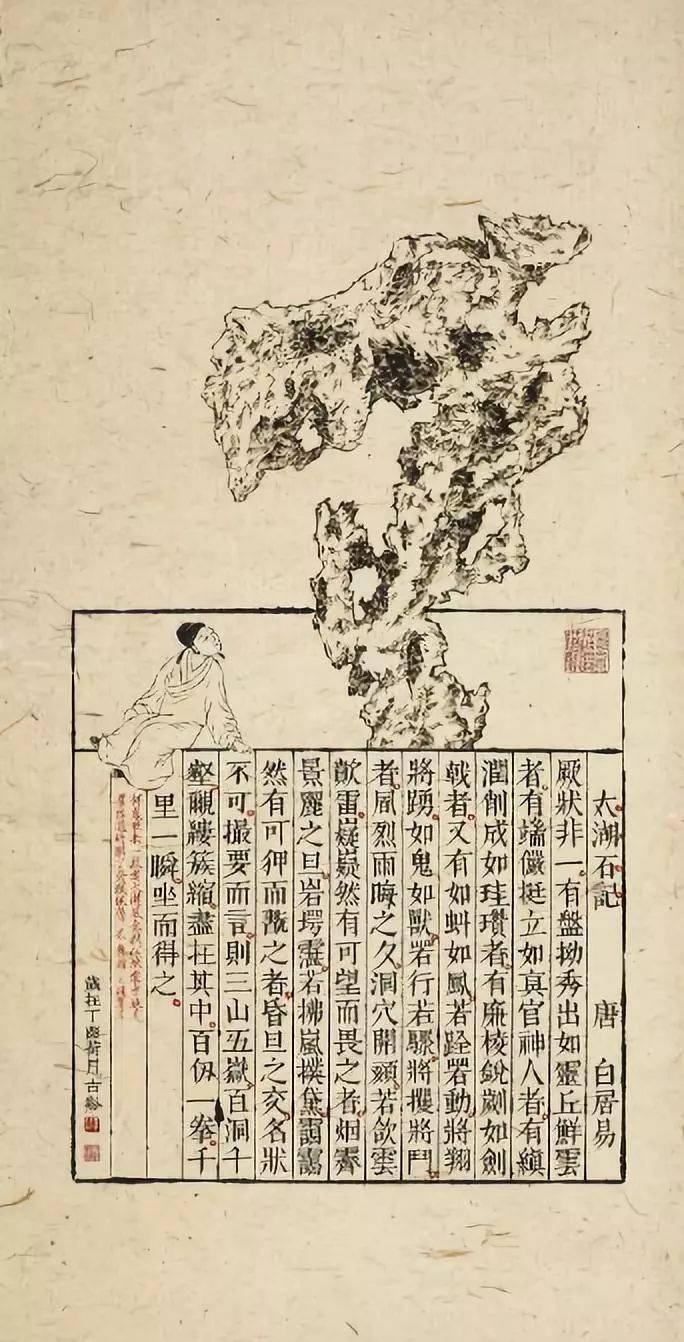 太湖石記 唐 白居易
厥狀非一有盤拗秀出如靈丘鮮雲
者有端儼挺立如真官神人者有縝
潤削成如珪瓚者有廉棱銳劌如劍
戟者又有如虯如鳳若跧若動將翔
將踴如鬼如獸若行若驟將攫將鬥
者風烈雨晦之夕洞穴開頦若欱雲
歕雷嶷嶷然有可望而畏之者烟霽
景麗之旦岩堮霮若拂嵐撲黛靄靄
然有可狎而翫之者昏旦之交名狀
不可撮要而言則三山五嶽百洞千
壑覼縷簇縮盡在其中百仞一拳千
里一瞬坐而得之
歲在丁酉荷月古